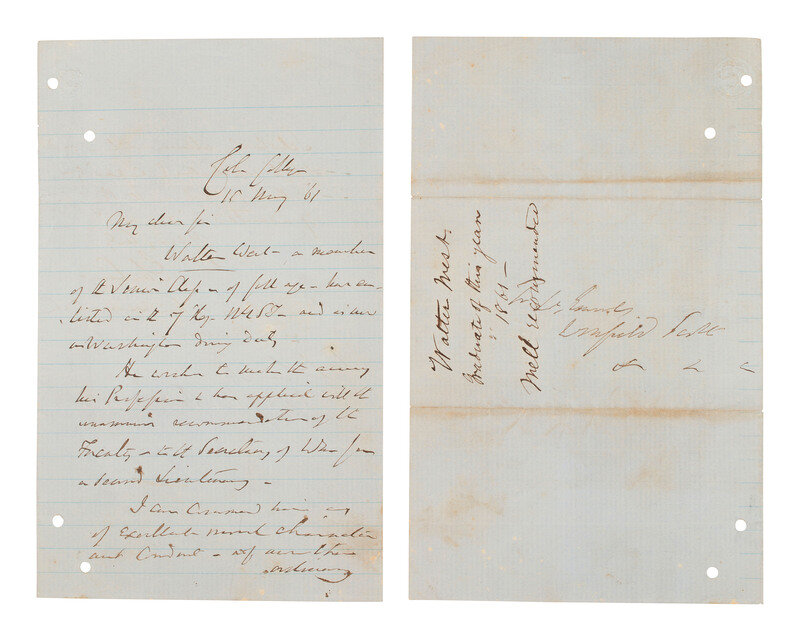 15 May '61
My dear Sir
Walter West a member
of the Senior Class of full age has en-
listed in the of NYSM and is now
in Washington doing duty
He wishes to make the army
his Profession & has applied with the
unanimous recommendation of the
Faculty to the Secretary of War for
a second Lieutenancy
I can commend him as
of excellent moral character
and conduct of more than
ordinary
Walter West.
Graduate of this year
1861
Well recommended
Winfield Scott